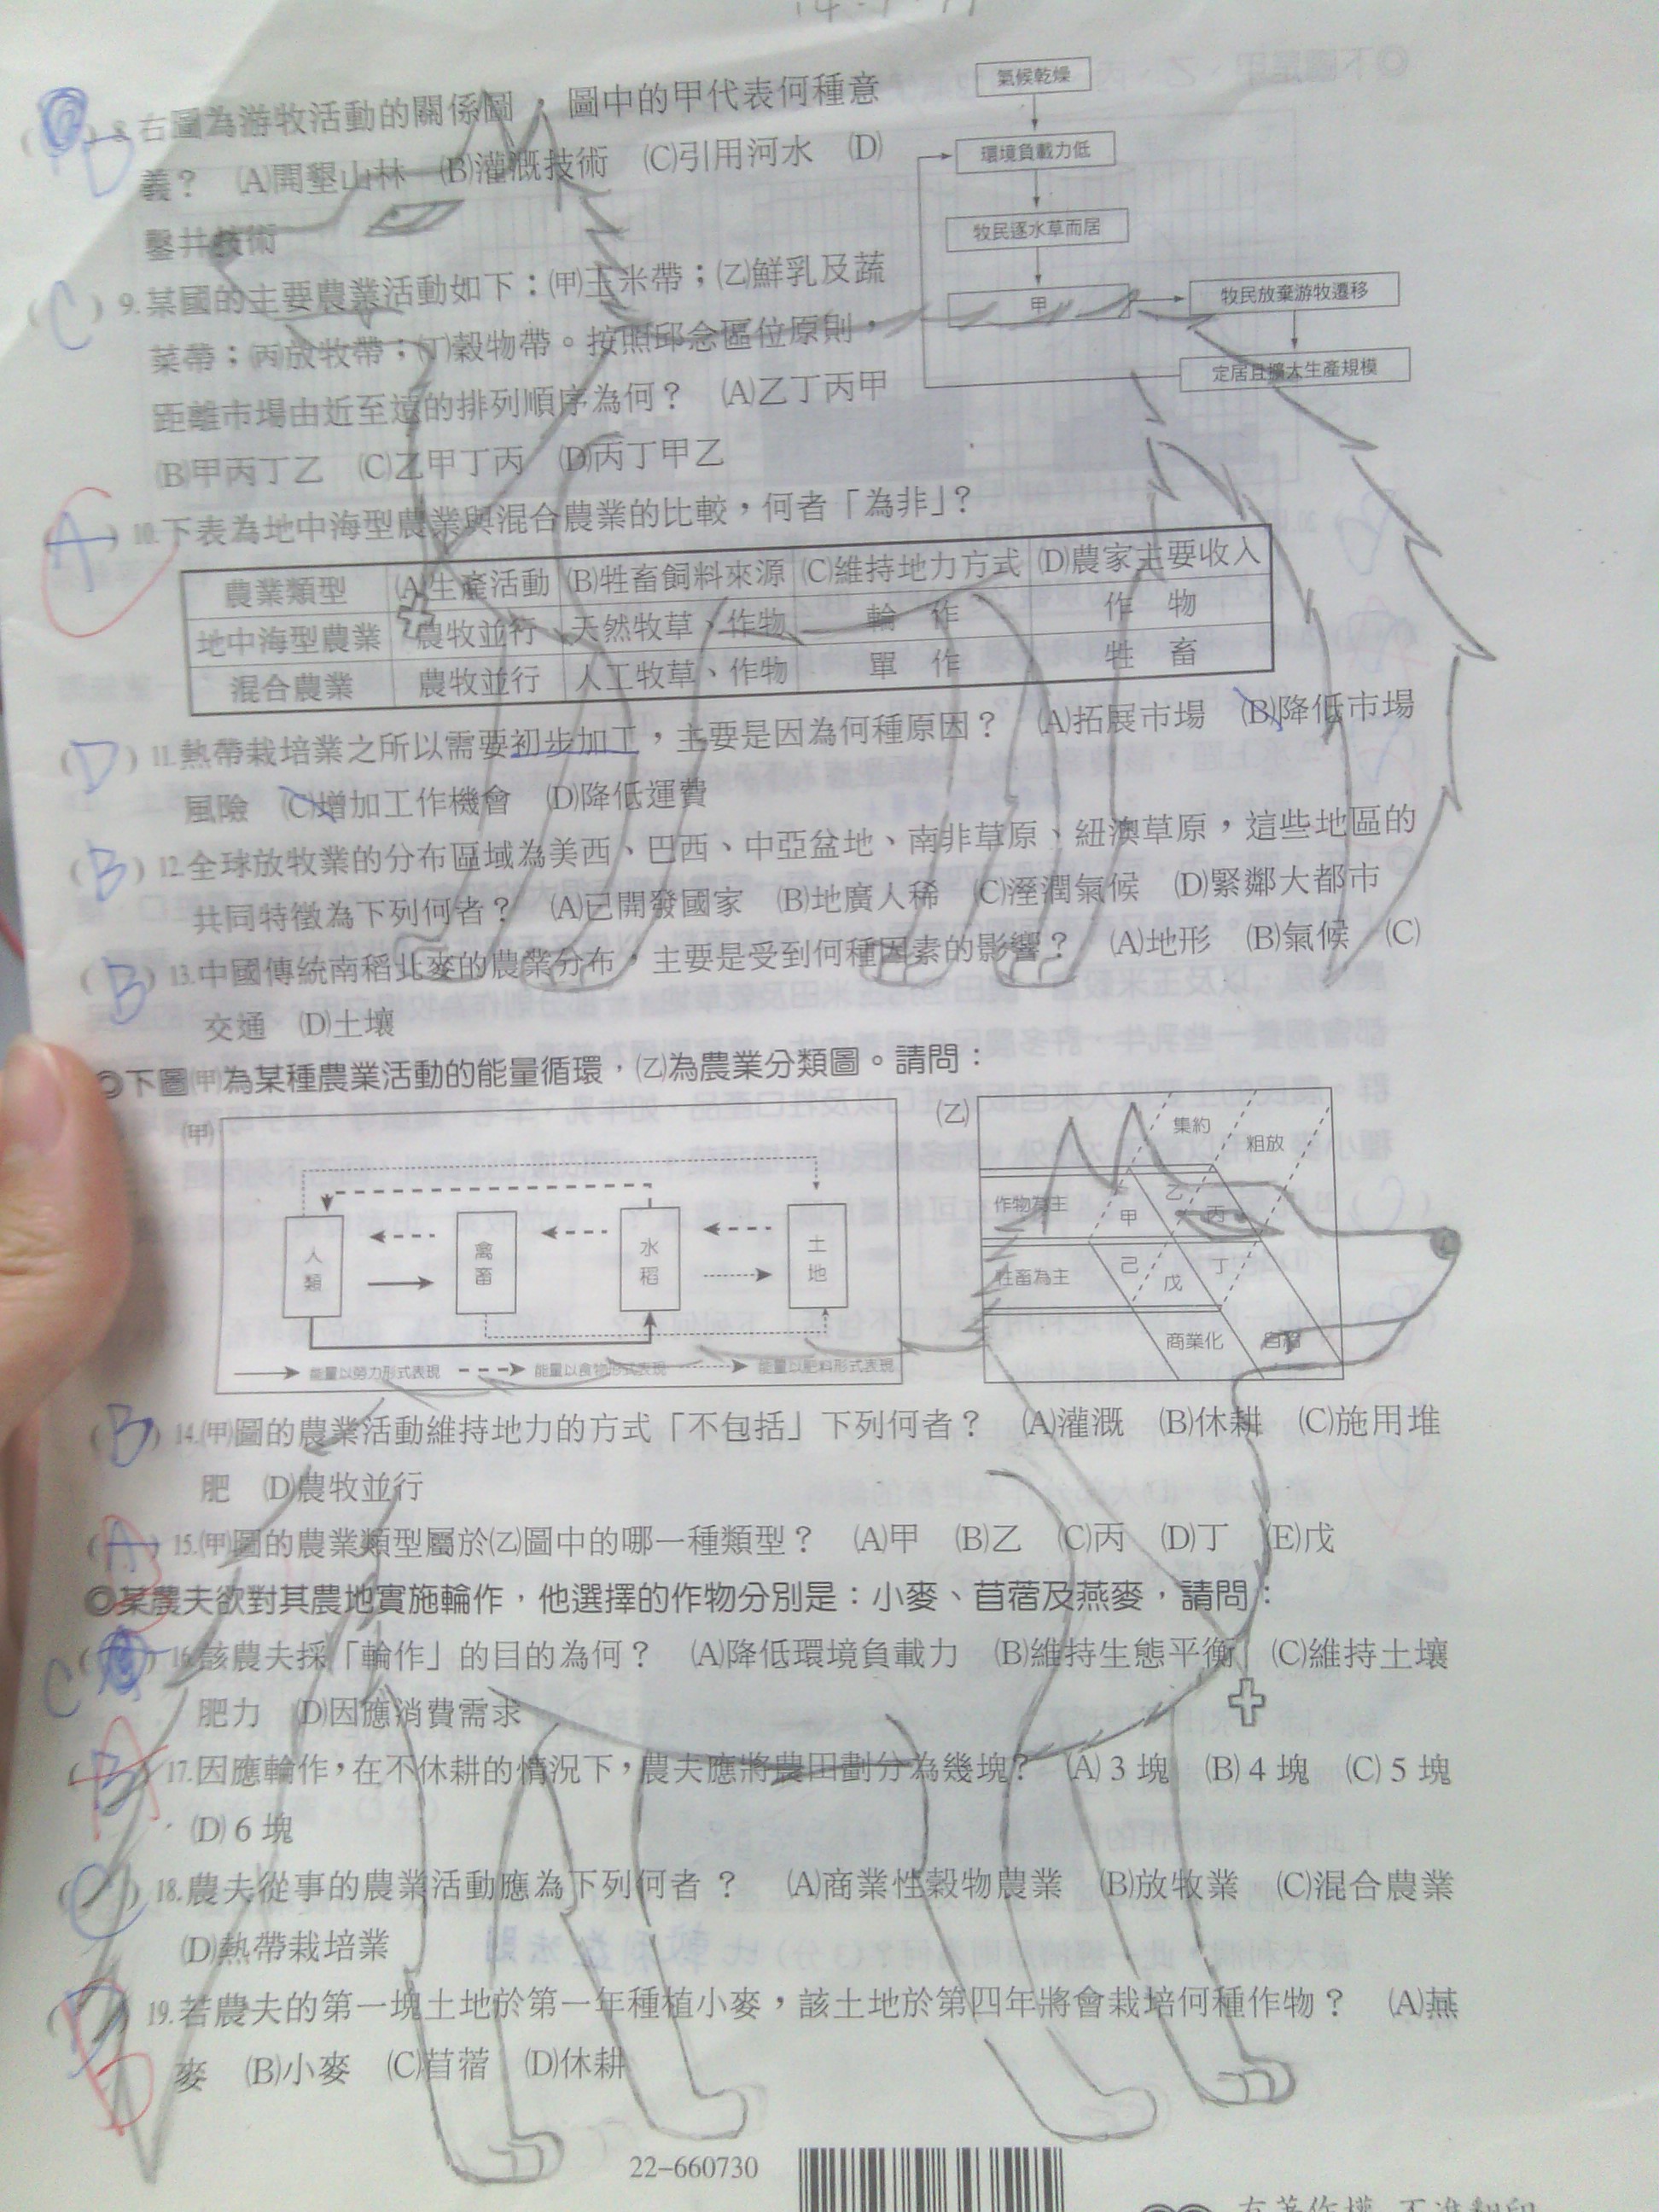 (D) 8.右圖為游牧活動的關係圖，圖中的甲代表何種意
義？ (A)開墾山林 (B)灌溉技術 (C)引用河水 (D)
鑿井技術
氣候乾燥
環境負載力低
牧民逐水草而居
甲
牧民放棄游牧遷移
定居且擴大生產規模
(C) 9.某國的主要農業活動如下：(甲)玉米帶；(乙)鮮乳及蔬
菜帶；(丙)放牧帶；(丁)穀物帶。按照邱念區位原則，
距離市場由近至遠的排列順序為何？ (A)乙丁丙甲
(B)甲丙丁乙 (C)乙甲丁丙 (D)丙丁甲乙
(A) 10.下表為地中海型農業與混合農業的比較，何者「為非」？
農業類型 (A)生產活動 (B)牲畜飼料來源 (C)維持地力方式 (D)農家主要收入
地中海型農業 農牧並行 天然牧草、作物 輪 作 作 物
混合農業 農牧並行 人工牧草、作物 單 作 牲 畜
(D) 11.熱帶栽培業之所以需要初步加工，主要是因為何種原因？ (A)拓展市場 (B)降低市場
風險 (C)增加工作機會 (D)降低運費
(B) 12.全球放牧業的分布區域為美西、巴西、中亞盆地、南非草原、紐澳草原，這些地區的
共同特徵為下列何者？ (A)已開發國家 (B)地廣人稀 (C)溼潤氣候 (D)緊鄰大都市
(B) 13.中國傳統南稻北麥的農業分布，主要是受到何種因素的影響？ (A)地形 (B)氣候 (C)
交通 (D)土壤
◎下圖(甲)為某種農業活動的能量循環，(乙)為農業分類圖。請問：
(甲)
人類
禽畜
水稻
土地
能量以勞力形式表現 能量以食物形式表現 能量以肥料形式表現
(乙)
集約
粗放
作物為主
甲
乙
丙
牲畜為主
己
戊
丁
商業化
自給
(B) 14.(甲)圖的農業活動維持地力的方式「不包括」下列何者？ (A)灌溉 (B)休耕 (C)施用堆
肥 (D)農牧並行
(A) 15.(甲)圖的農業類型屬於(乙)圖中的哪一種類型？ (A)甲 (B)乙 (C)丙 (D)丁 (E)戊
◎某農夫欲對其農地實施輪作，他選擇的作物分別是：小麥、苜蓿及燕麥，請問：
C ( ) 16.該農夫採「輪作」的目的為何？ (A)降低環境負載力 (B)維持生態平衡 (C)維持土壤
肥力 (D)因應消費需求
(B) 17.因應輪作，在不休耕的情況下，農夫應將農田劃分為幾塊？ (A) 3 塊 (B) 4 塊 (C) 5 塊
(D) 6 塊
(C) 18.農夫從事的農業活動應為下列何者？ (A)商業性穀物農業 (B)放牧業 (C)混合農業
(D)熱帶栽培業
(D) 19.若農夫的第一塊土地於第一年種植小麥，該土地於第四年將會栽培何種作物？ (A)燕
麥 (B)小麥 (C)苜蓿 (D)休耕
22-660730